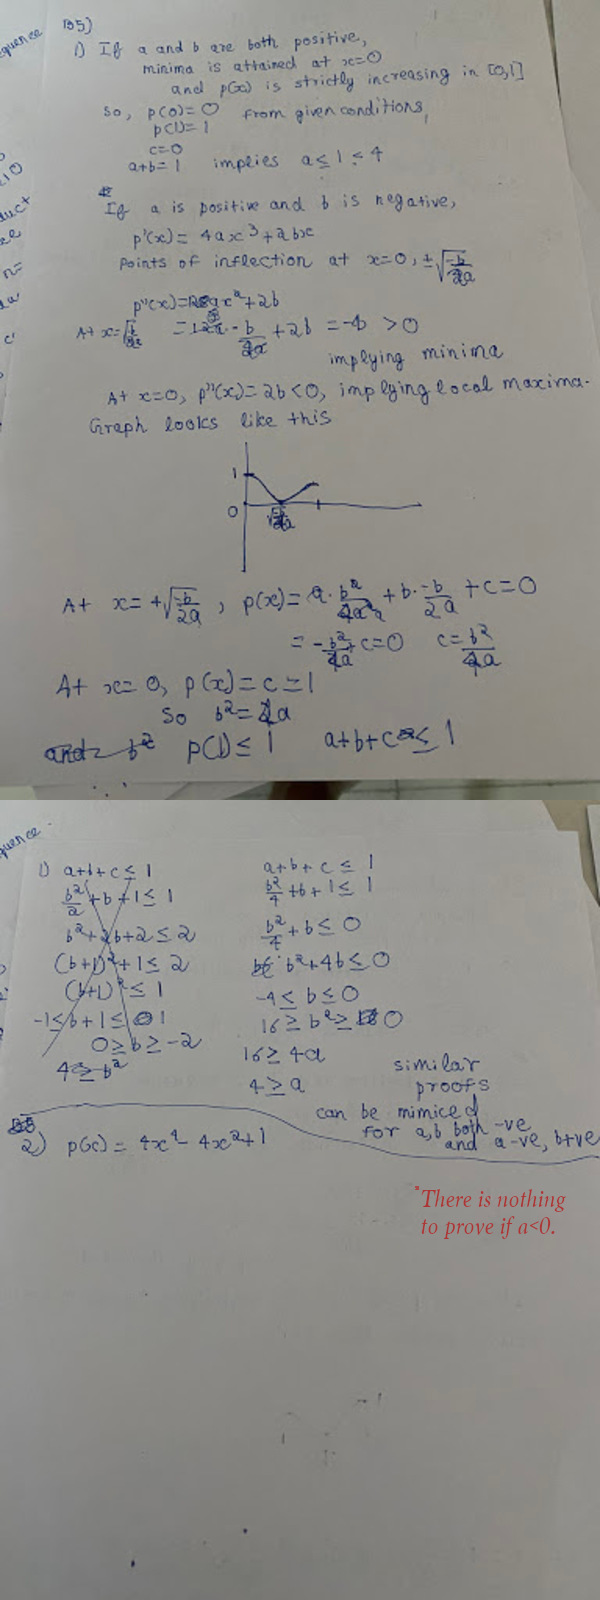 equence
B5)
1) If a and b are both positive,
minima is attained at x=0
and p(x) is strictly increasing in [0,1]
So, p(0)=0 from given conditions,
p(1)=1
c=0
a+b=1 implies a≤1≤4
If a is positive and b is negative,
p'(x)= 4ax³+2bx
Points of inflection at x=0, ±√(-b/2a)
p"(x)=12ax²+2b
At x= =12a·-b/2a+2b =-4b >0
implying minima
At x=0, p"(x)=2b<0, implying local maxima.
Graph looks like this
1
0
√(-b/2a)
At x=+√(-b/2a), p(x)= a·b²/4a² + b·-b/2a +c=0
= -b²/4a+c=0 c=b²/4a
At x=0, p(x)=c=1
So b²=4a
and b² p(1)≤1 a+b+c≤1
equence
1) a+b+c≤1 a+b+c≤1
b²/2+b+1≤1 b²/4+b+1≤1
b²+2b+2≤2 b²/4+b≤0
(b+1)²+1≤2 b²+4b≤0
(b+1)²≤1 -4≤b≤0
-1≤b+1≤1 16≥b²≥0
0≥b≥-2 16≥4a
4≥b² 4≥a
similar
proofs
can be mimiced
for a,b both -ve
and a-ve, b+ve
2) p(x)= 4x⁴-4x²+1
There is nothing
to prove if a<0.